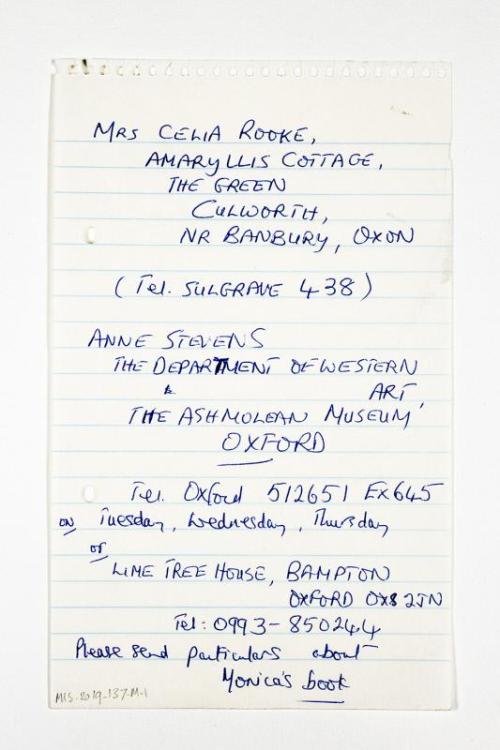 MRS CELIA ROOKE,
AMARYLLIS COTTAGE,
THE GREEN
CULWORTH,
NR BANBURY, OXON
(Tel. SULGRAVE 438)
ANNE STEVENS
THE DEPARTMENT OF WESTERN
ART,
THE ASHMOLEAN MUSEUM
OXFORD
Tel. Oxford 512651 EX645
on Tuesday, Wednesday, Thursday
or
LIME TREE HOUSE, BAMPTON
OXFORD OX8 2JN
Tel: 0993-850244
Please send particulars about
Monica's book
MIS.2019-137-M-1